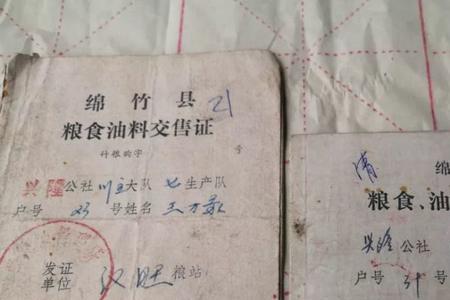 绵竹县 21
粮食油料交售证
号
兴隆公社川主大队七生产队
户号 号姓名王
发证
单位 汉旺粮站
清
绵
粮食、油
兴隆公社
户号